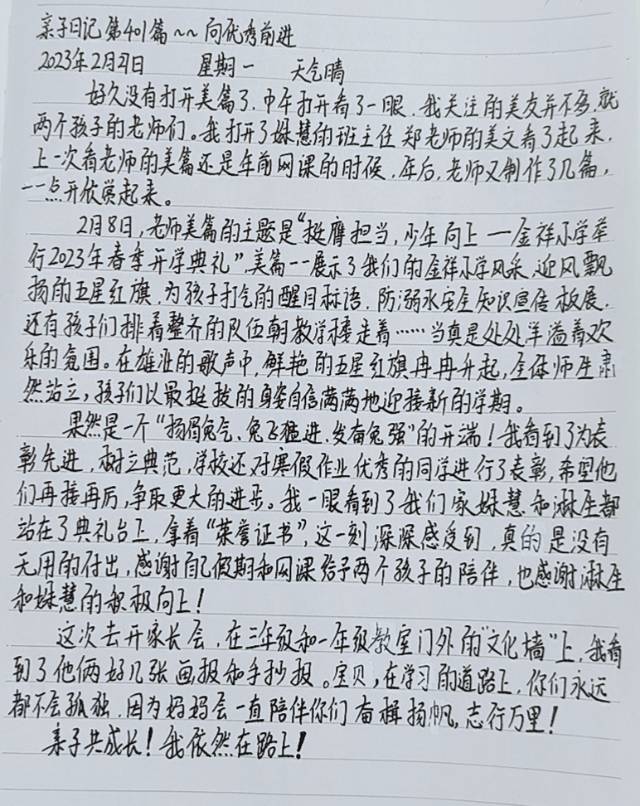 亲子日记第401篇~~向优秀前进
2023年2月27日 星期一 天气晴
好久没有打开美篇了,中午打开看了一眼,我关注的美友并不多,就
两个孩子的老师们。我打开了姝慧的班主任郑老师的美文看了起来,
上一次看老师的美篇还是年前网课的时候,年后,老师又制作了几篇,
一一点开欣赏起来。
2月8日,老师美篇的主题是“挺膺担当,少年向上一金祥小学举
行2023年春季开学典礼”,美篇一一展示了我们的金祥小学风采,迎风飘
扬的五星红旗,为孩子打气的醒目标语,防溺水安全知识宣传板展,
还有孩子们排着整齐的队伍朝教学楼走着……当真是处处洋溢着欢
乐的氛围。在雄壮的歌声中,鲜艳的五星红旗冉冉升起,全体师生肃
然站立,孩子们以最挺拔的身姿自信满满地迎接新的学期。
果然是一个“扬眉兔气、兔飞猛进、发奋兔强”的开端!我看到了为表
彰先进,树立典范,学校还对寒假作业优秀的同学进行了表彰,希望他
们再接再厉,争取更大的进步。我一眼看到了我们家姝慧和淋在都
站在了典礼台上,拿着“荣誉证书”,这一刻深深感受到,真的是没有
无用的付出,感谢自己假期和网课给予两个孩子的陪伴,也感谢淋在
和姝慧的积极向上!
这次去开家长会,在三年级和一年级教室门外的“文化墙”上,我看
到了他俩好几张画报和手抄报。宝贝,在学习的道路上,你们永远
都不会孤独,因为妈妈会一直陪伴你们奋楫扬帆,志行万里!
亲子共成长!我依然在路上!